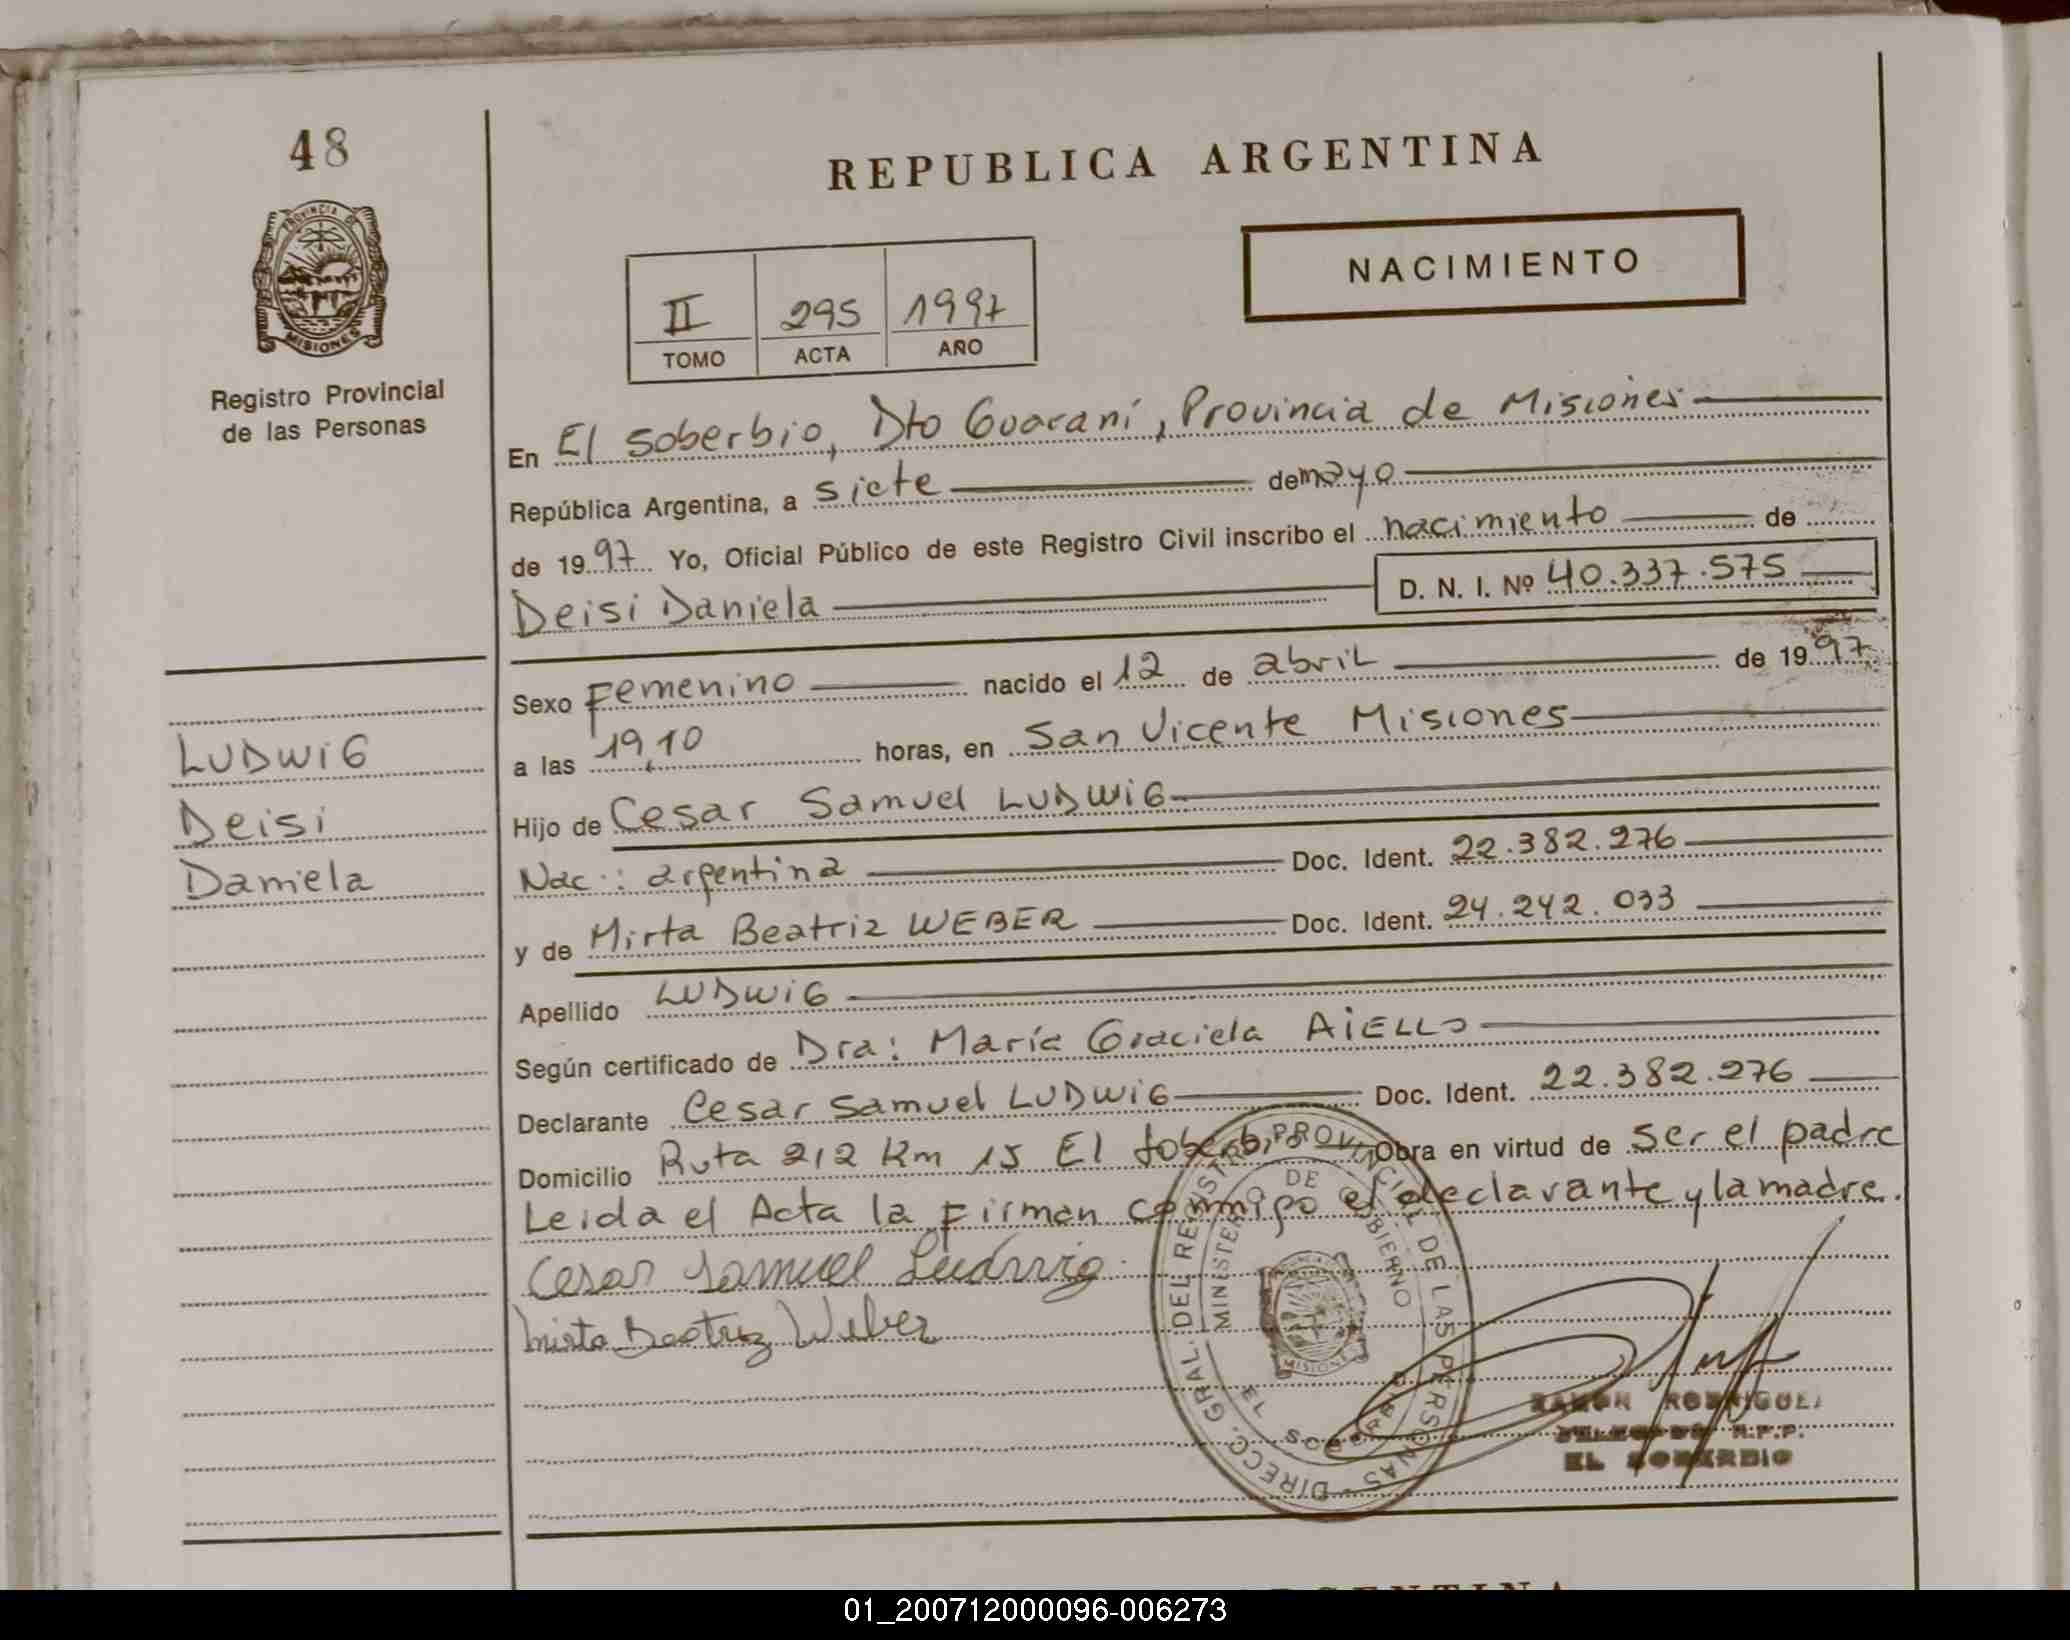 48
REPUBLICA ARGENTINA
PROVINCIA DE
MISIONES
NACIMIENTO
II 295 1997
TOMO ACTA AÑO
Registro Provincial
de las Personas
En El Soberbio, Dto Guaraní, Provincia de Misiones
República Argentina, a siete de mayo
de 1997 Yo, Oficial Público de este Registro Civil inscribo el nacimiento de
Deisi Daniela D. N. I. Nº 40.337.575
Sexo Femenino nacido el 12 de abril de 1997
a las 19,10 horas, en San Vicente Misiones
Hijo de Cesar Samuel LUDWIG
Nac.: argentina Doc. Ident. 22.382.276
y de Mirta Beatriz WEBER Doc. Ident. 24.242.033
Apellido LUDWIG
Según certificado de Dra: María Graciela AIELLO
Declarante Cesar Samuel LUDWIG Doc. Ident. 22.382.276
Domicilio Ruta 212 Km 15 El Soberbio Obra en virtud de ser el padre
Leida el Acta la Firman conmigo el declarante y la madre.
Cesar Samuel Ludwig
Mirta Beatriz Weber
LUDWIG
Deisi
Daniela
DIRECC. GRAL. DEL REGISTRO PROVINCIAL DE LAS PERSONAS
MINISTERIO DE GOBIERNO
MISIONES
EL SOBERBIO
RAMON RODRIGUEZ
DELEGADO R.P.P.
EL SOBERBIO
01_200712000096-006273